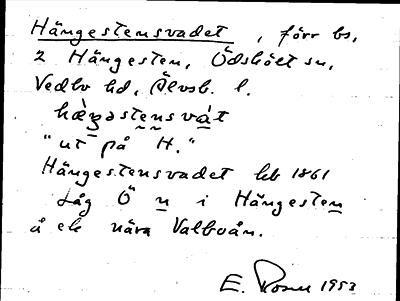 Hängestensvadet, förr bs,
2 Hängesten, Ödskölt sn,
Vedbo hd, Älvsb. l.
hæ̀ŋəstensvá̱t
"ut på H."
Hängestensvadet hb 1861
Låg Ö n i Hängesten
å ek nära Valboån.
E. Rosell 1953